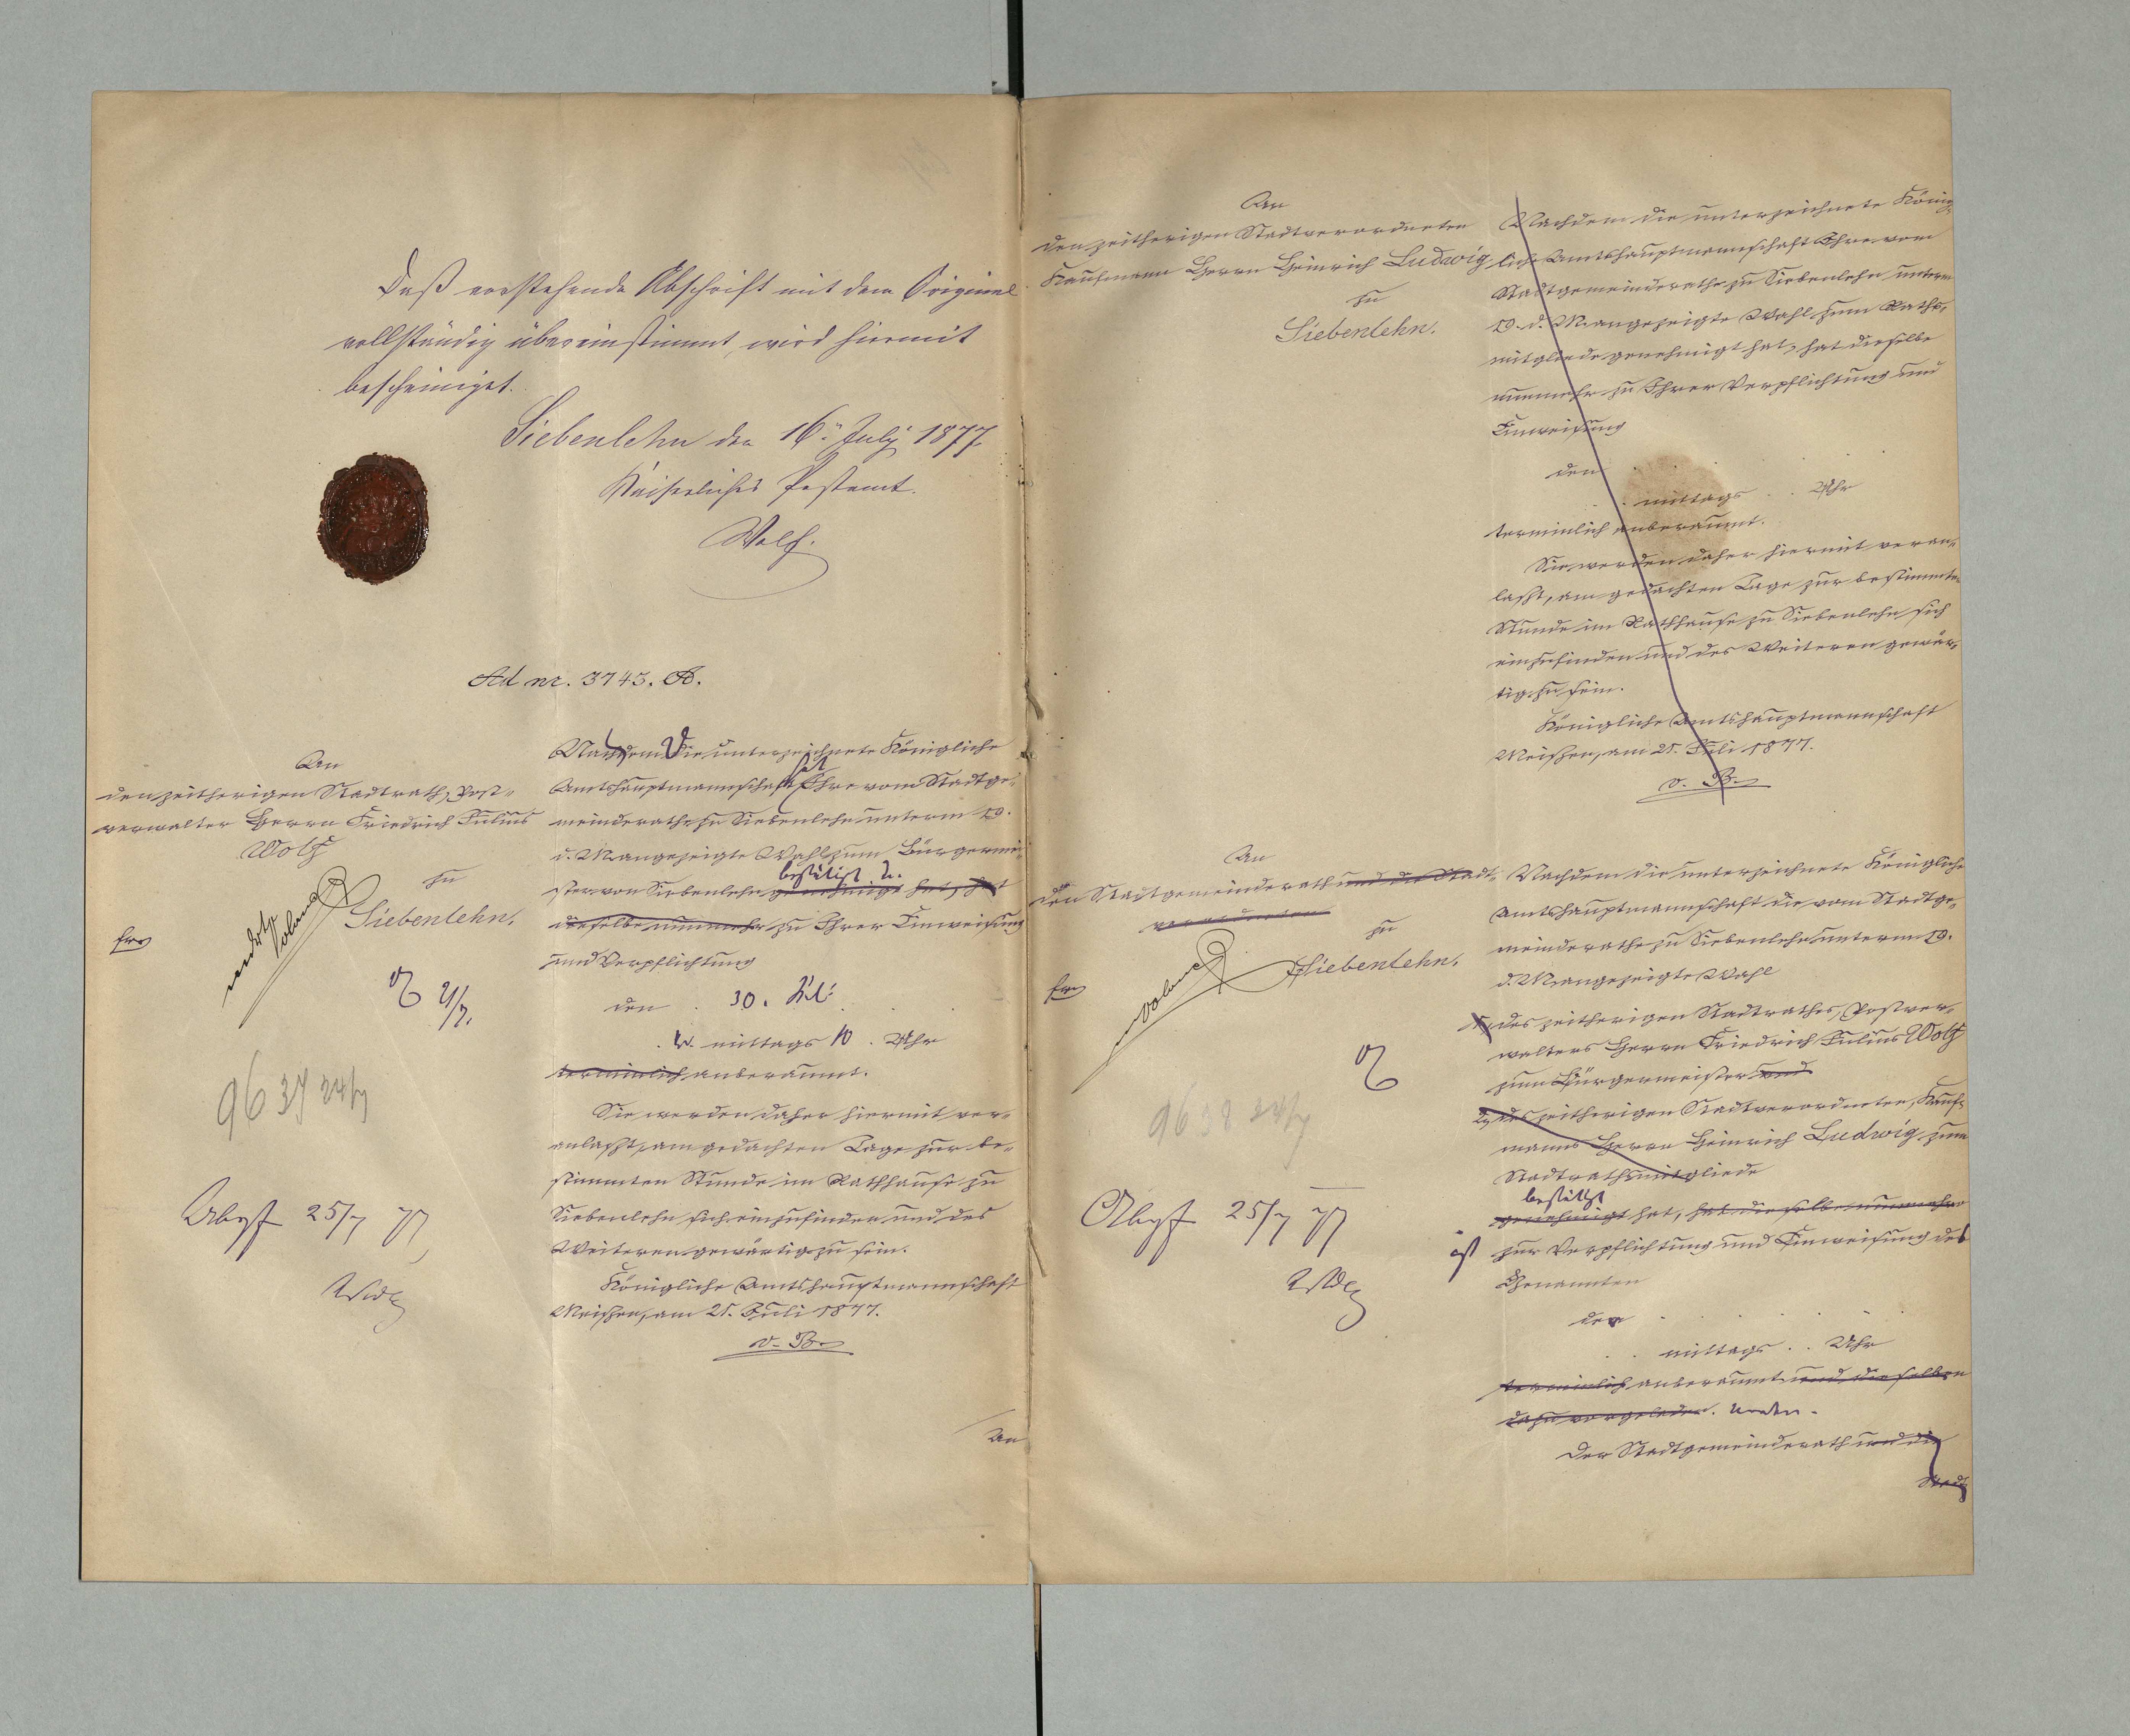 Daß vorstehende Abschrift mit dem Original
vollständig übereinstimmt, wird hiermit
bescheiniget.
Siebenlehn den 16. July 1877
Kaiserliches Postamt.
Wolf.
Ad nr. 3743. A.
An
den zeitherigen Stadtrath, Post-
verwalter Herrn Friedrich Julius
Wolf
zu
Siebenlehn.
21/7.
9637 24/7
Abgf 25/7 77
Nachdem Die unterzeichnete Königliche
Amtshauptmannschaft hat Ihre vom Stadtge-
meinderathe zu Siebenlehn unterm 19.
d. M. angezeigte Wahl zum Bürgermei-
bestätigt u.
ster von Siebenlehn genehmigt hat, hat
dieselbe nunmehr zu Ihrer Einweisung
und Verpflichtung
den 30. Juli
V. mittags 10 Uhr
terminlich anberaumt.
Sie werden daher hiermit ver-
anlaßt, am gedachten Tage zur be-
stimmten Stunde im Rathhause zu
Siebenlehn sich einzufinden und des
Weiteren gewärtig zu sein.
Königliche Amtshauptmannschaft
Meißen, am 21. Juli 1877.
v. B.
An
An
den zeitherigen Stadtverordneten
Kaufmann Herrn Heinrich Ludwig
zu
Siebenlehn.
Nachdem die unterzeichnete König-
liche Amtshauptmannschaft Ihre vom
Stadtgemeinderathe zu Siebenlehn unterm
19. d. M. angezeigte Wahl zum Raths-
mitgliede genehmigt hat, hat dieselbe
nunmehr zu Ihrer Verpflichtung und
Einweisung
den
mittags Uhr
terminlich anberaumt.
Sie werden daher hiermit veran-
laßt, am gedachten Tage zur bestimmten
Stunde im Rathhause zu Siebenlehn sich
einzufinden und des Weiteren gewär-
tig zu sein.
Königliche Amtshauptmannschaft
Meißen, am 21. Juli 1877.
v. B.
An
den Stadtgemeinderath und die Stadt-
verordneten
zu
Siebenlehn.
9638 24/7
Abgf 25/7 77
Nachdem die unterzeichnete Königliche
Amtshauptmannschaft die vom Stadtge-
meinderathe zu Siebenlehn unterm 19.
d. M. angezeigte Wahl
1, des zeitherigen Stadtrathes, Postver-
walters Herrn Friedrich Julius Wolf
zum Bürgermeister und
2, des zeitherigen Stadtverordneten, Kauf-
manns Herrn Heinrich Ludwig zum
Stadtrathsmitgliede
bestätigt
genehmigt hat, hat dieselbe nunmehro
ist zur Verpflichtung und Einweisung des
Genannten
der
mittags Uhr
terminlich anberaumt und dieselben
dazu vorgeladen. worden.
Der Stadtgemeinderath und die
Stadt-